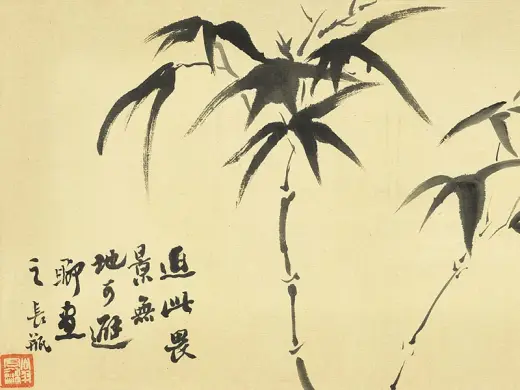 此畏
景無
地可避
聊畫
之長瓶